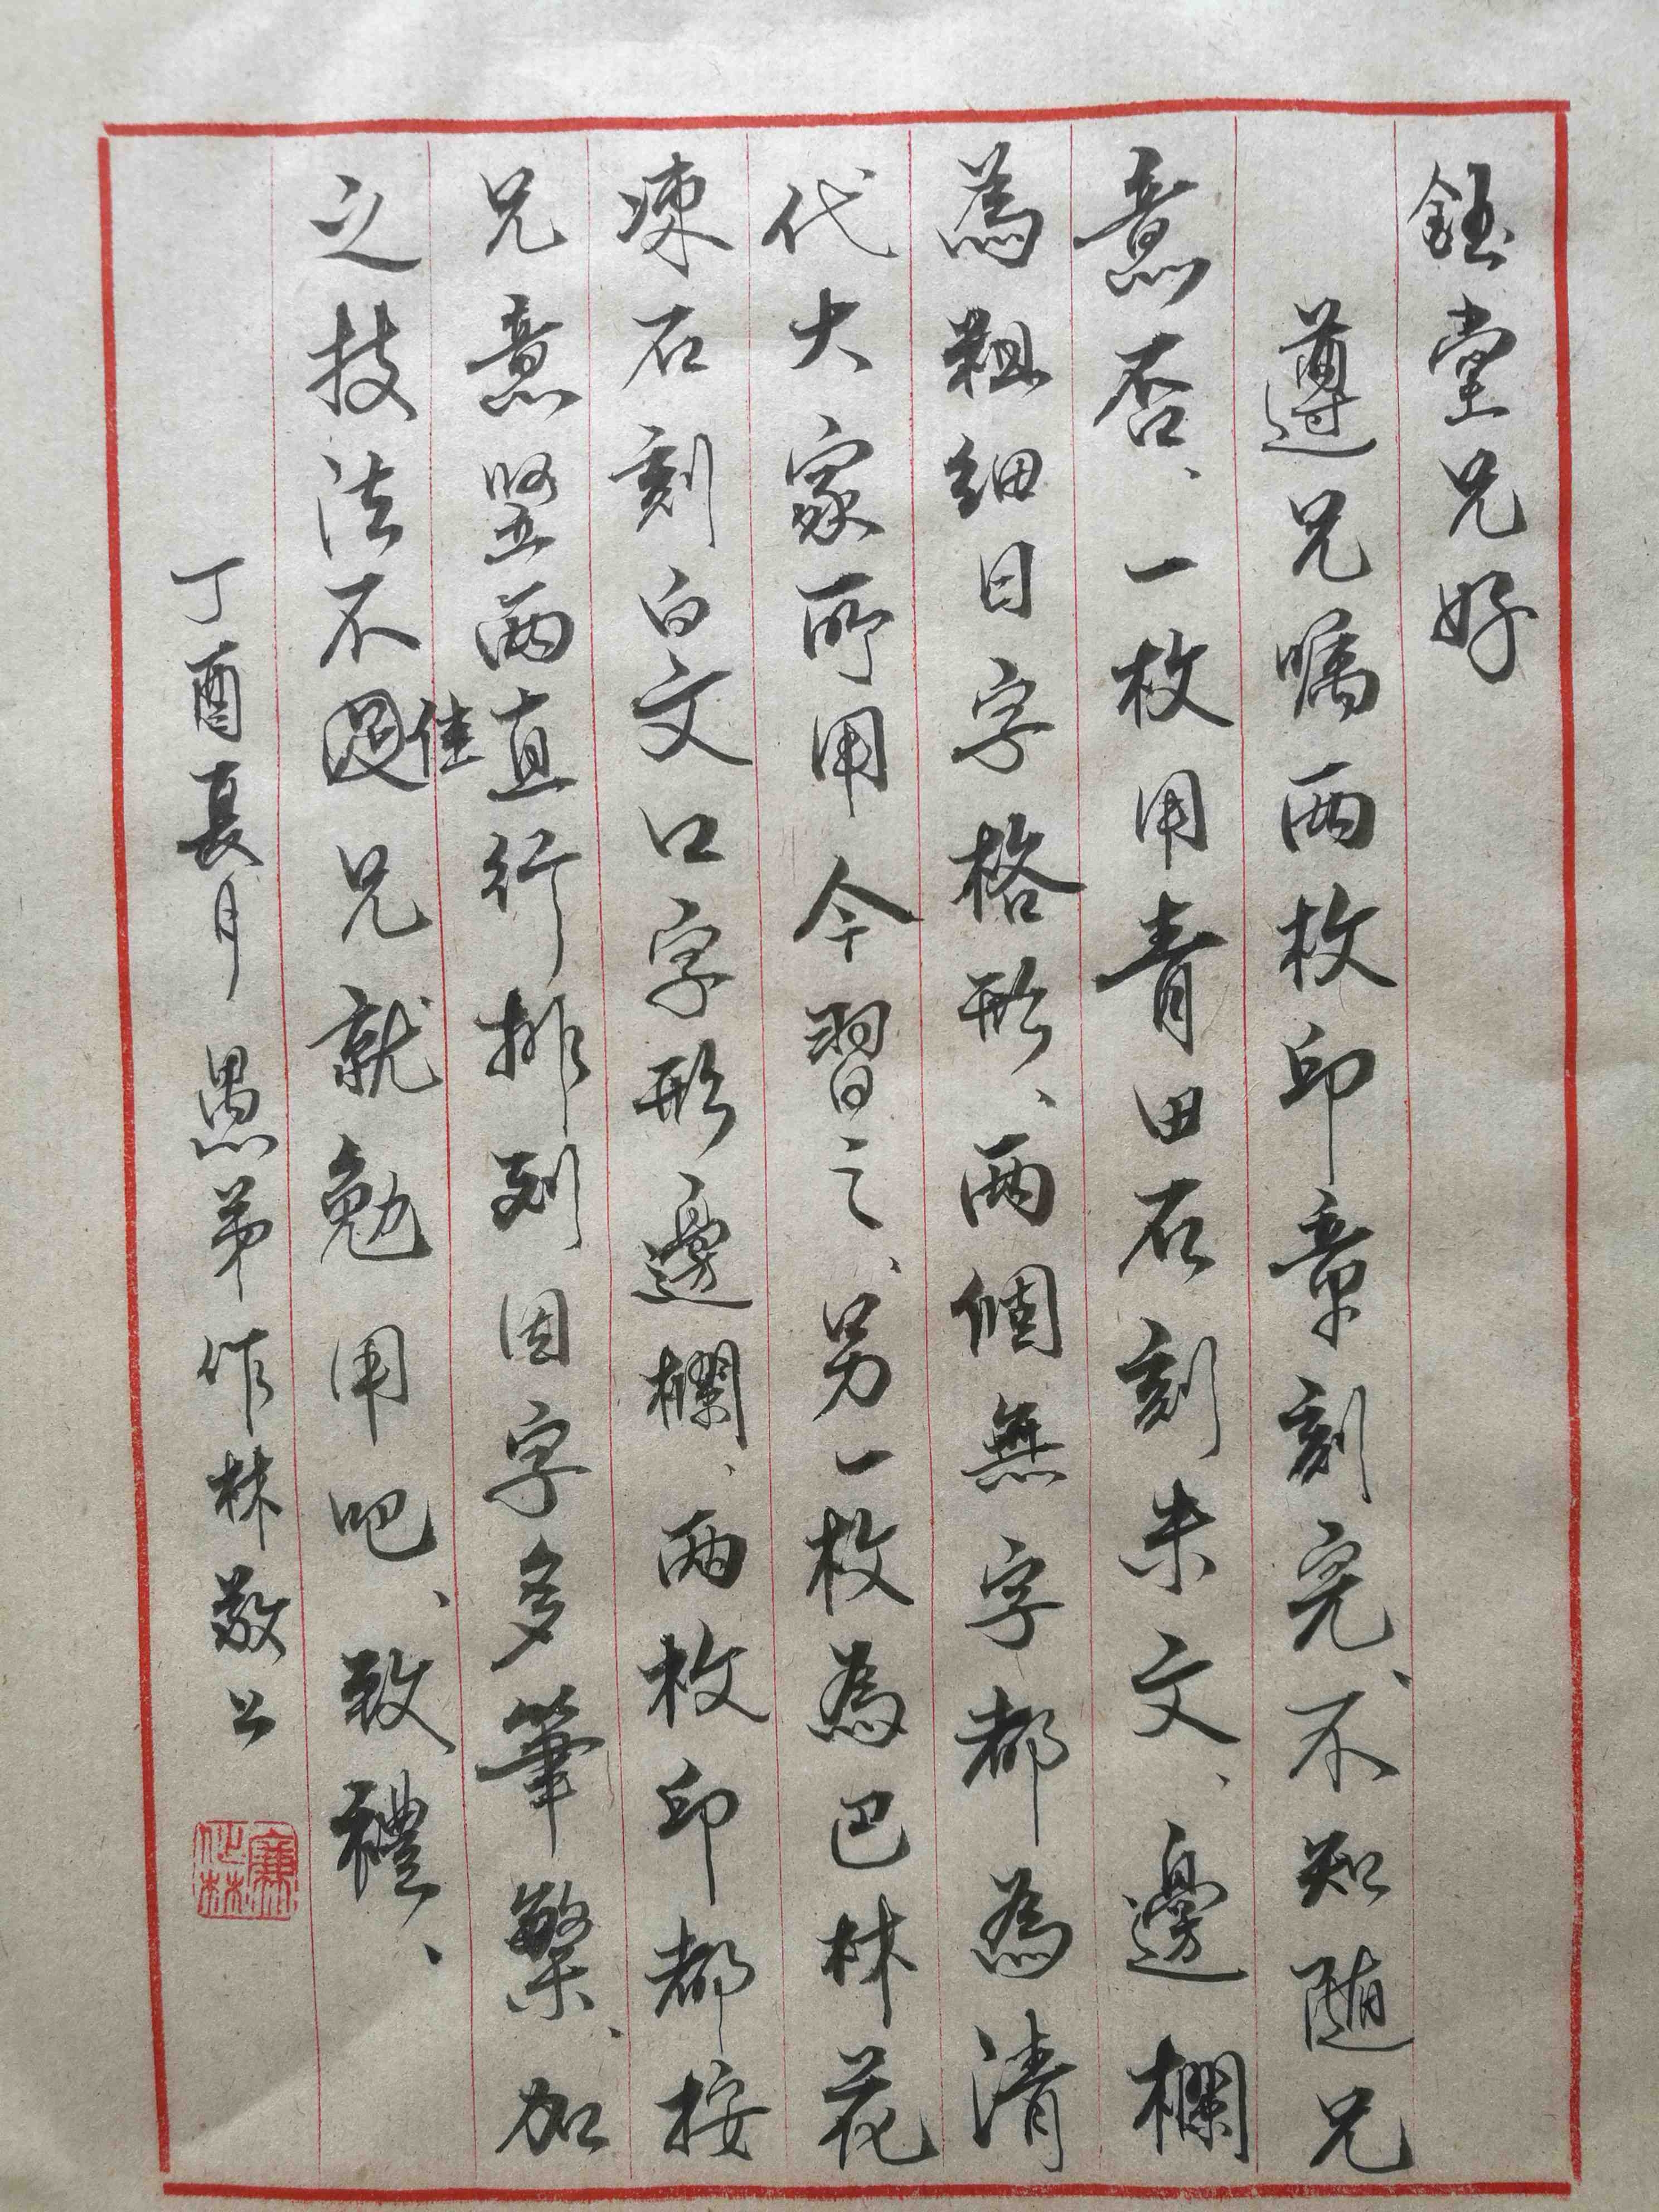 鈺堂兄好
遵兄囑兩枚印章刻完、不知随兄
意否、一枚用青田石刻朱文、邊欄
為粗細日字格形、兩個無字都為清
代大家所用今習之、另一枚為巴林花
涑石刻白文口字形邊欄、兩枚印都按
兄意竪兩直行排列因字多筆繁、加
之技法不過佳兄就勉用吧、致禮、
丁酉夏月 愚弟作林敬上